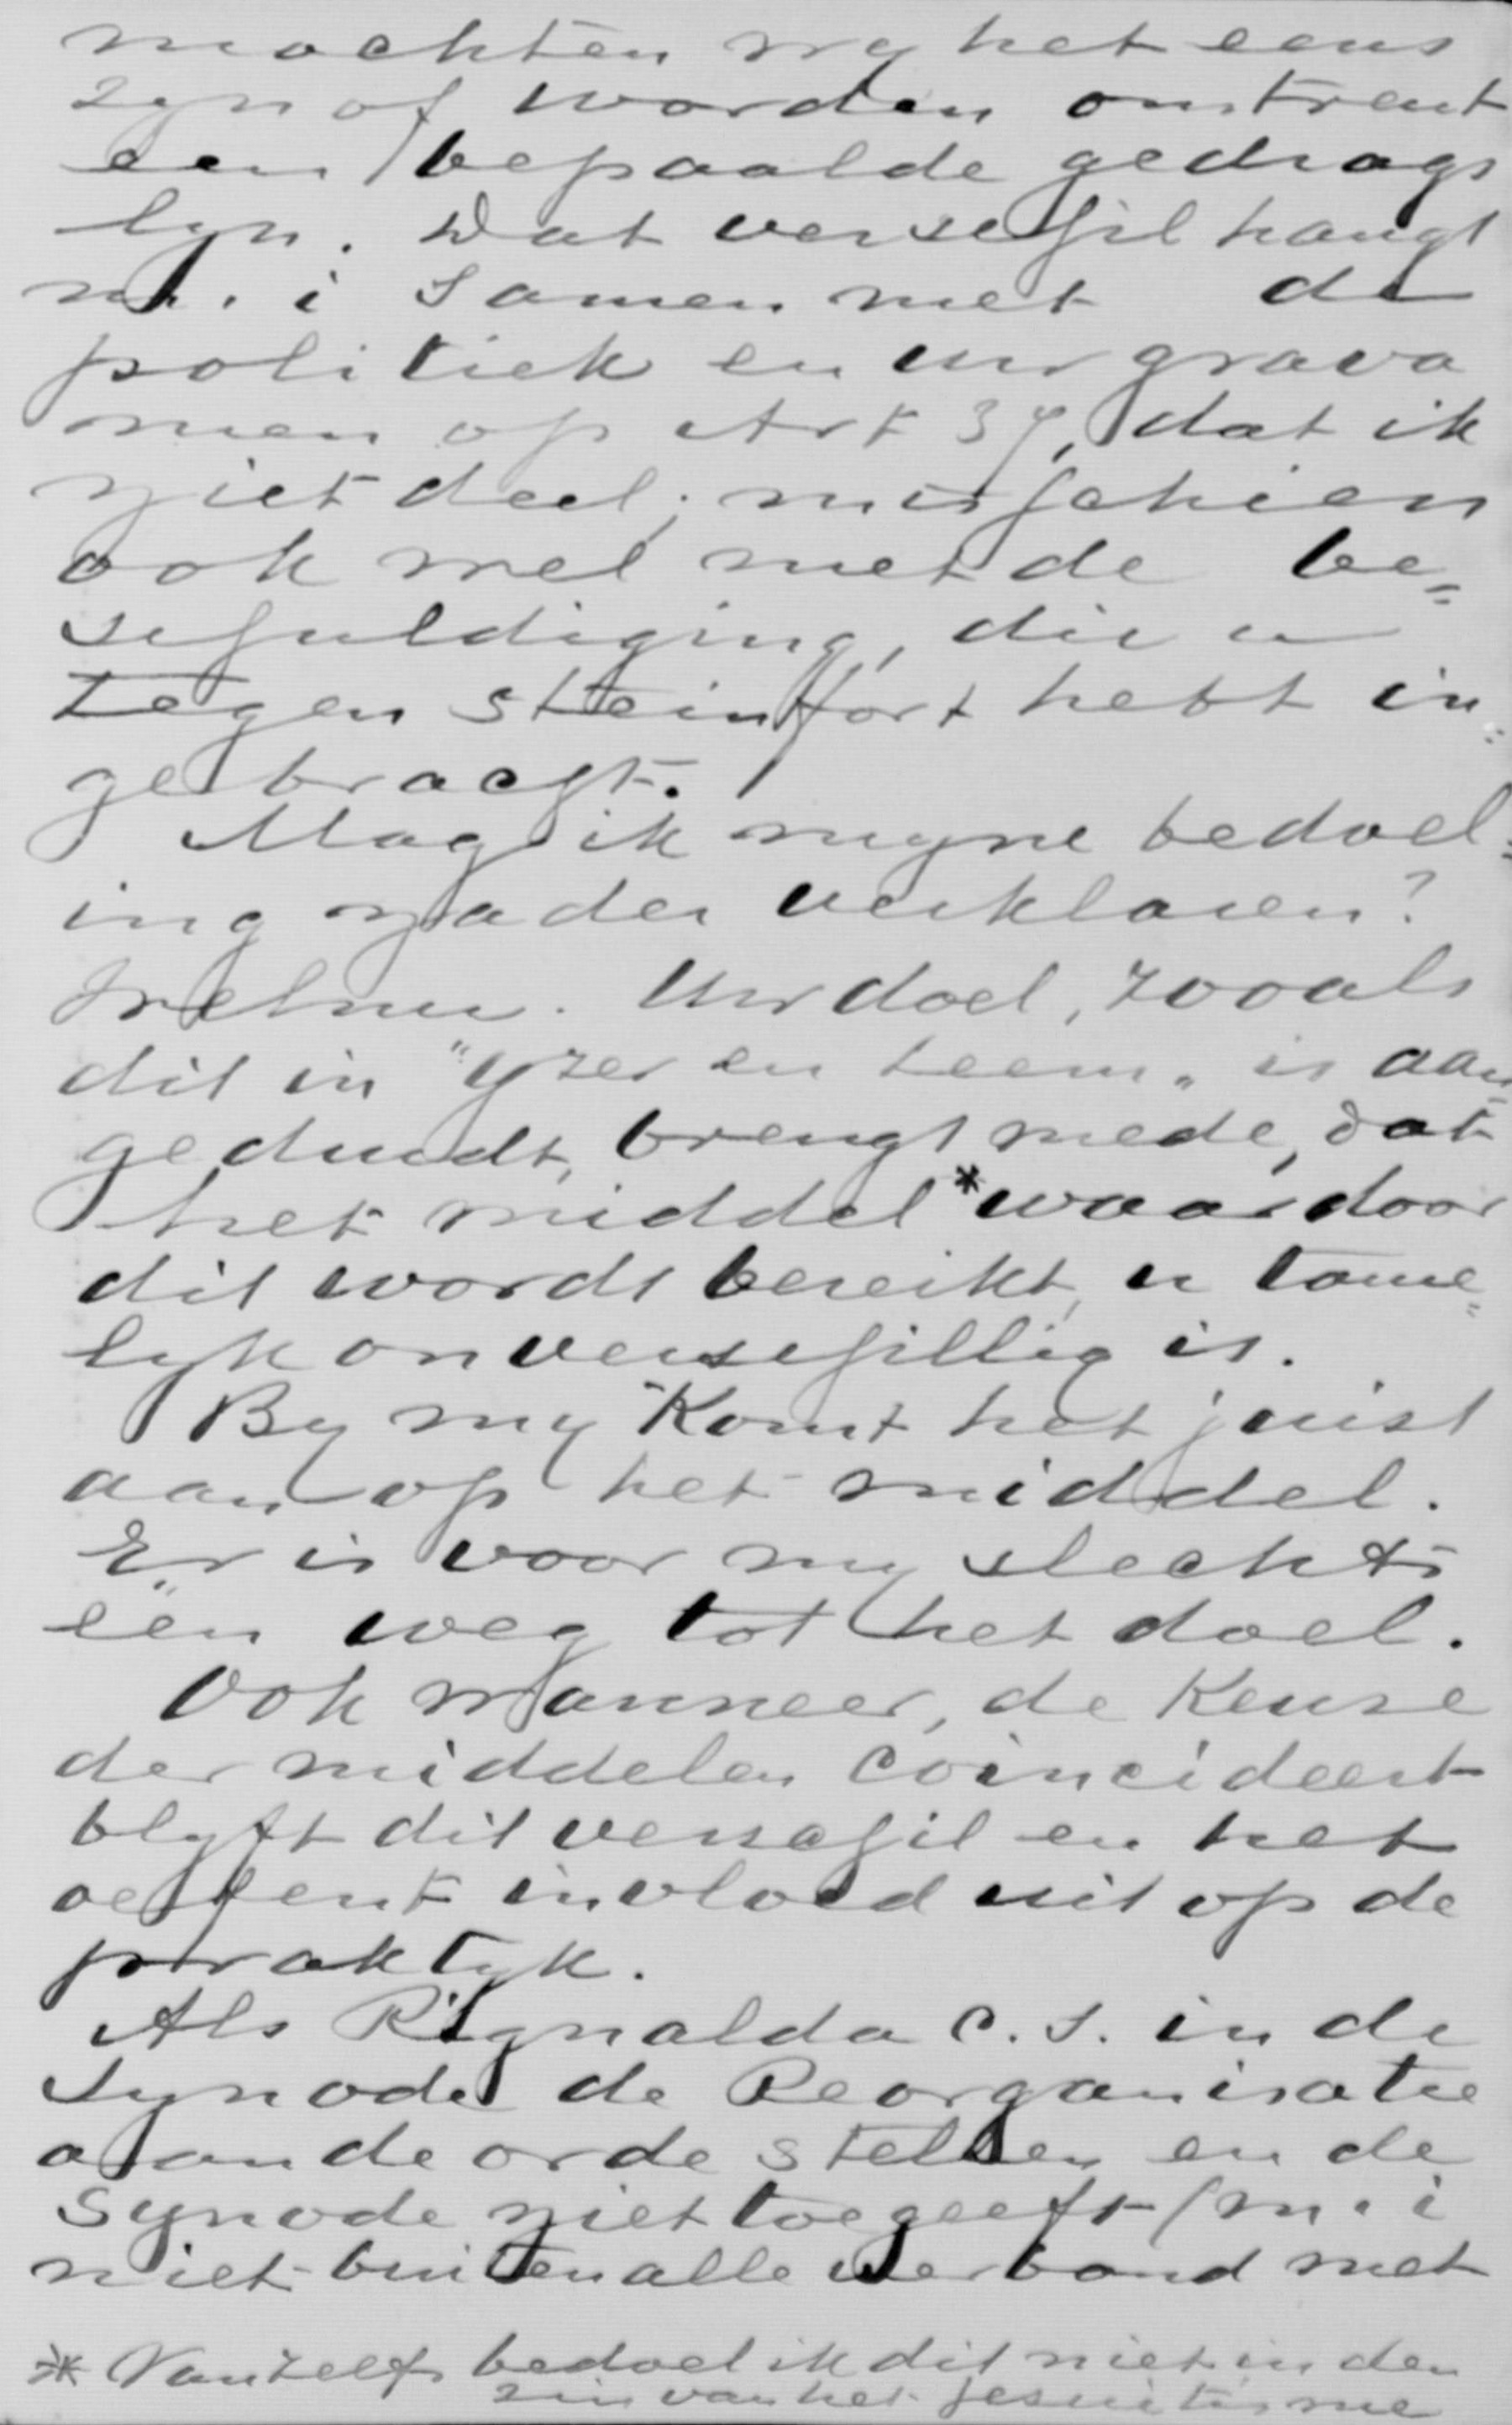 mochten wy het eens
zyn of worden omtrent
een bepaalde gedrags
lyn. Dat verschil hangt
m. i samen met de
politiek en uw grava
men op Art 37, dat ik
niet deel; misschien
ook wel met de be=
schuldiging, die u
tegen Steinfort hebt in=
gebracht.
Mag ik myne bedoel=
ing nader verklaren?
Uw doel, zooals
dit in "Yzer en leem" is aan=
geduidt, brengt mede, dat
het middel * waardoor
dit wordt bereikt, u tame=
lyk onverschillig is.
By my komt het juist
aan op het middel.
Er is voor my slechts
een weg tot het doel.
Ook wanneer, de keuze
der middelen coincideert
blyft dit verschil en het
oefent invloed uit op de
praktyk.
Als Rignalda c.s. in de
Synode de Reorganisatie
aan de orde stellen en de
Synode niet toegeeft (m. i
niet buiten alle verband met
* Vanzelfs bedoel ik dit niet in den
zin van het jesuitisme